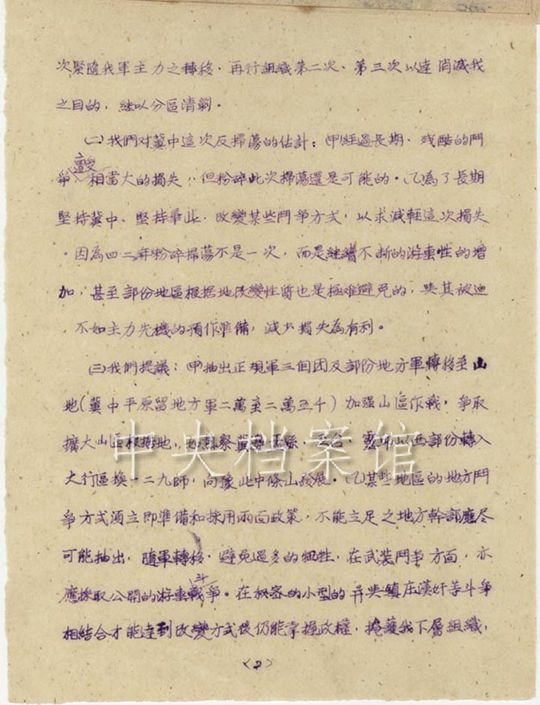 次緊隨我軍主力之轉移．再行組織第二次、第三次以達消滅我
之目的，繼以分區清剿。
(二)我們对冀中這次反掃蕩的估計：(甲)經過長期．殘酷的鬥
爭遭受相當大的損失，但粉碎此次掃蕩還是可能的。(乙)為了長期
堅持冀中、堅持華北．改變某些鬥爭方式，以求減輕這次損失
．因為四二年粉碎掃蕩不是一次，而是繼續不断的游擊性的增
加，甚至部份地區根据地改變性質也是極难避免的，與其被迫
．不如主力先機的預作準備，減少損失為有利。
(三)我們提議：(甲)抽出正規軍三個团及部份地方軍轉移至山
地(冀中平原留地方軍二萬至二萬五千)加強山區作戰，爭取
擴大山區根据地，以西部份轉入
太行區換一二九師，向豫北中條山發展。(乙)某些地區的地方鬥
爭方式須立即準備和採用兩面政策，不能立足之地方幹部應尽
可能抽出，隨軍轉移，避免過多的牺牲，在武装鬥爭方面，亦
應採取公開的游擊戰爭。在秘密的小型的與鎮压漢奸等斗爭
相結合才能達到改變方式後仍能掌握政權，掩護我下層組織，
<2>
中央档案馆